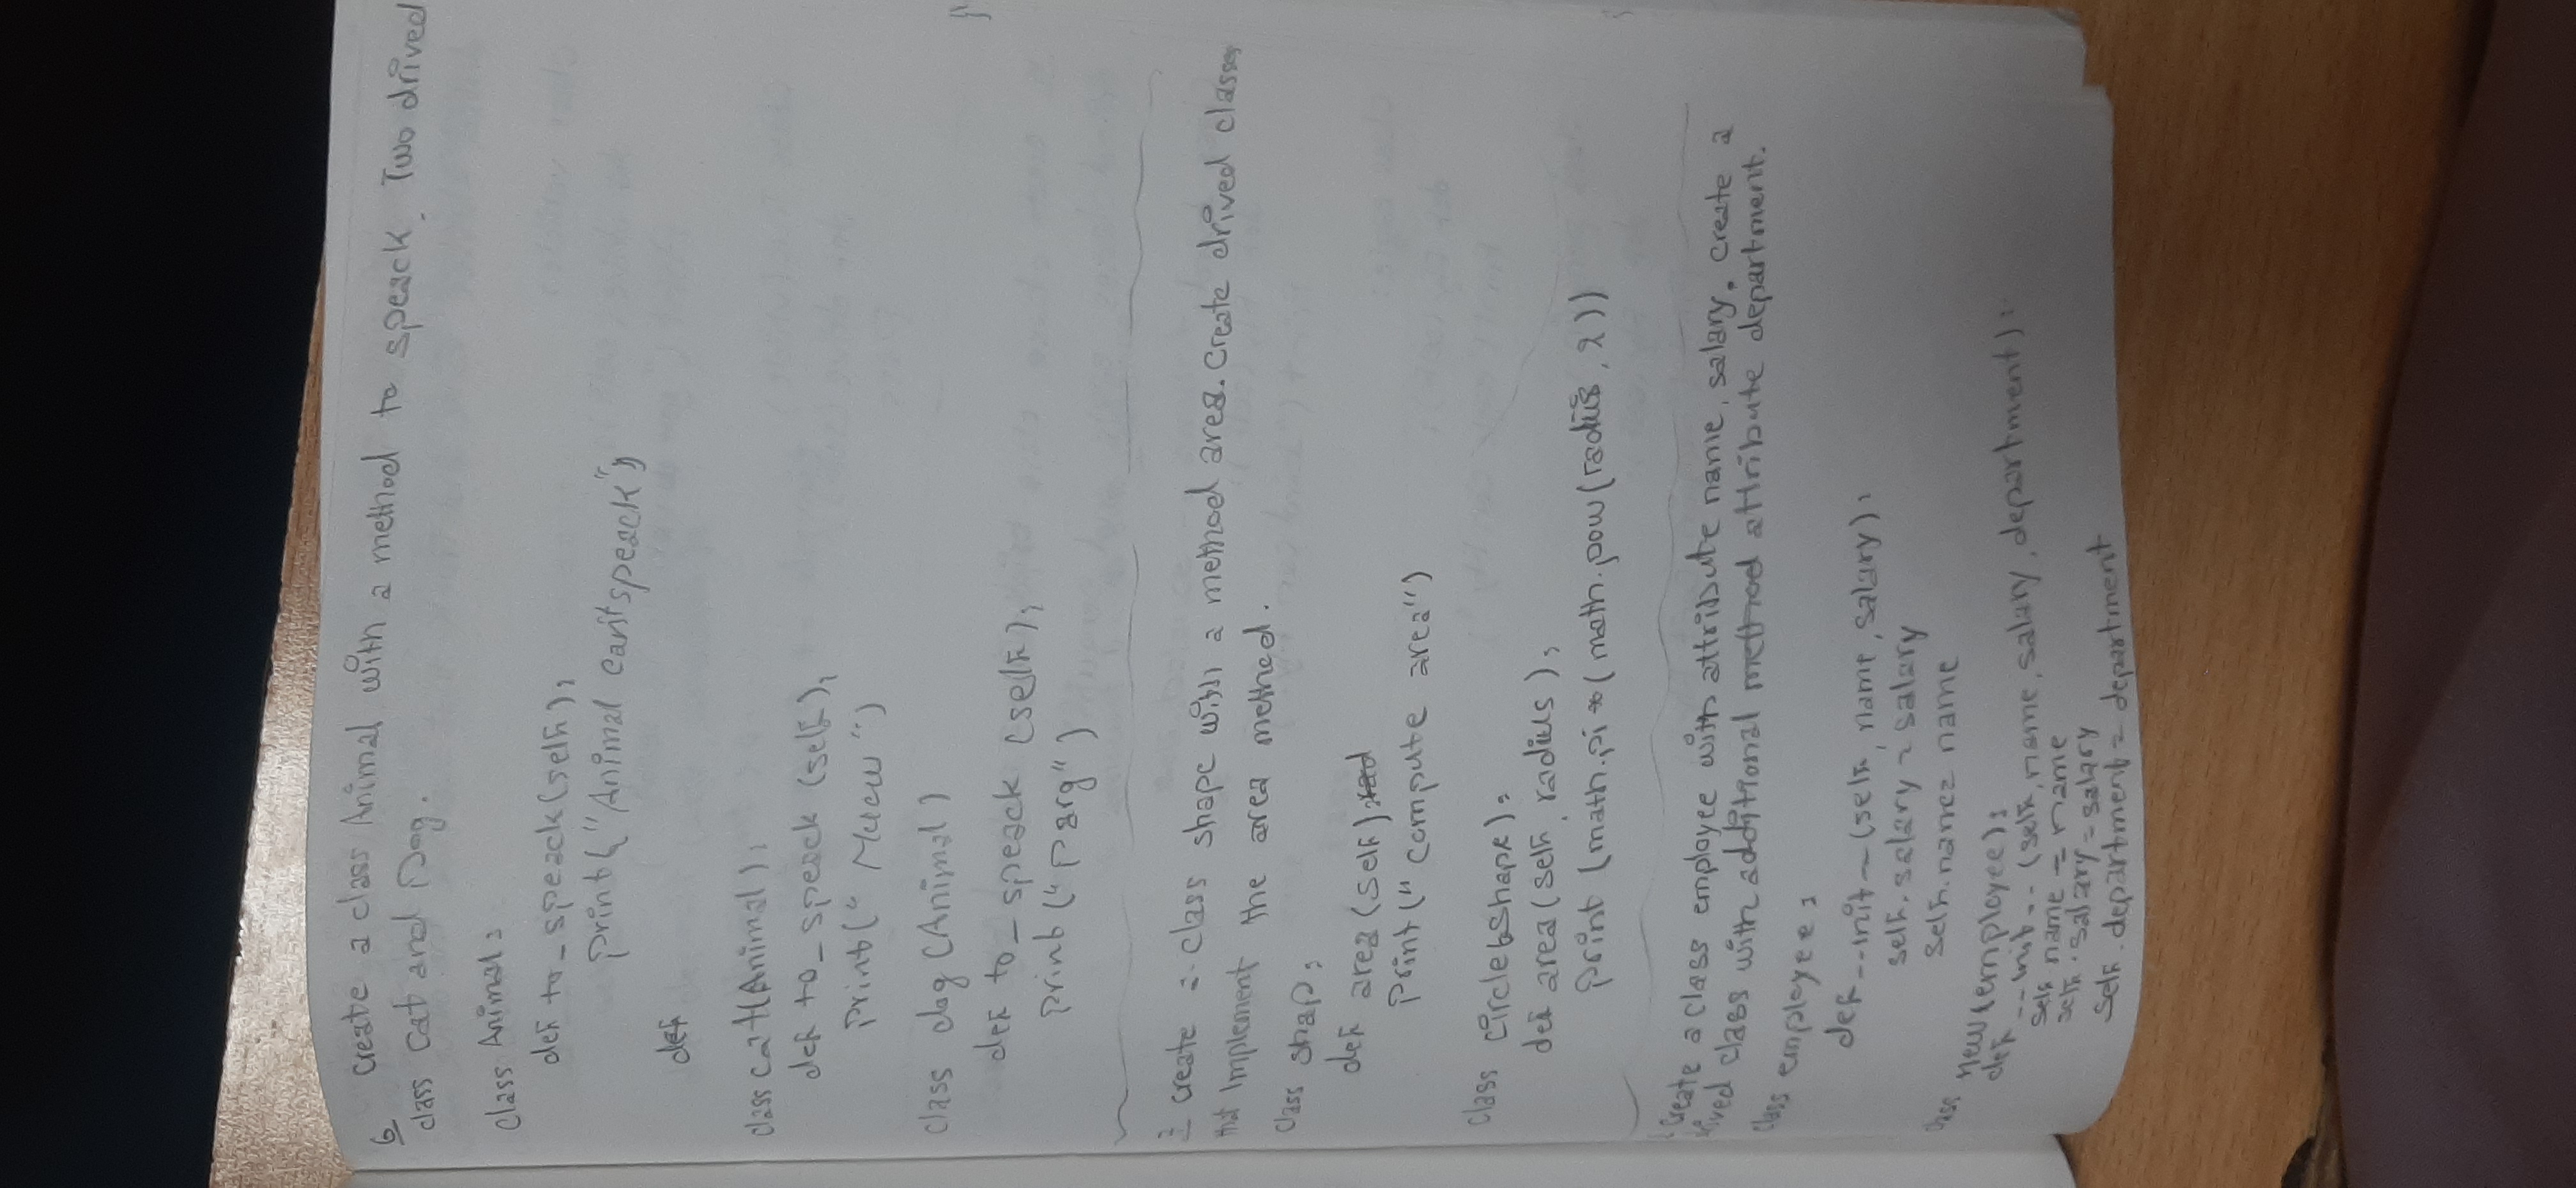 6 create a class Animal with a method to speack. Two drived
class cat and Dog.
class Animal:
def to_speack(self):
print("Animal can't speack")
def
class cat(Animal):
def to_speack (self):
print(" Meew ")
class dog (Animal)
def to_speack (self):
print ("Parg")
create a class shape with a method area. Create drived classes
that Implement the area method.
class shap:
def area(self):
print(" compute area")
class circle(Shape):
def area(self, radius):
print (math.pi * ( math.pow(radius, 2))
Create a class employee with attribute name, salary. create a
drived class with additional method attribute department.
class employee:
def __init__(self, name, salary):
self.salary = salary
self.name = name
class new(employee):
def __init__ (self, name, salary, department):
self name = name
self.salary = salary
self.department = department